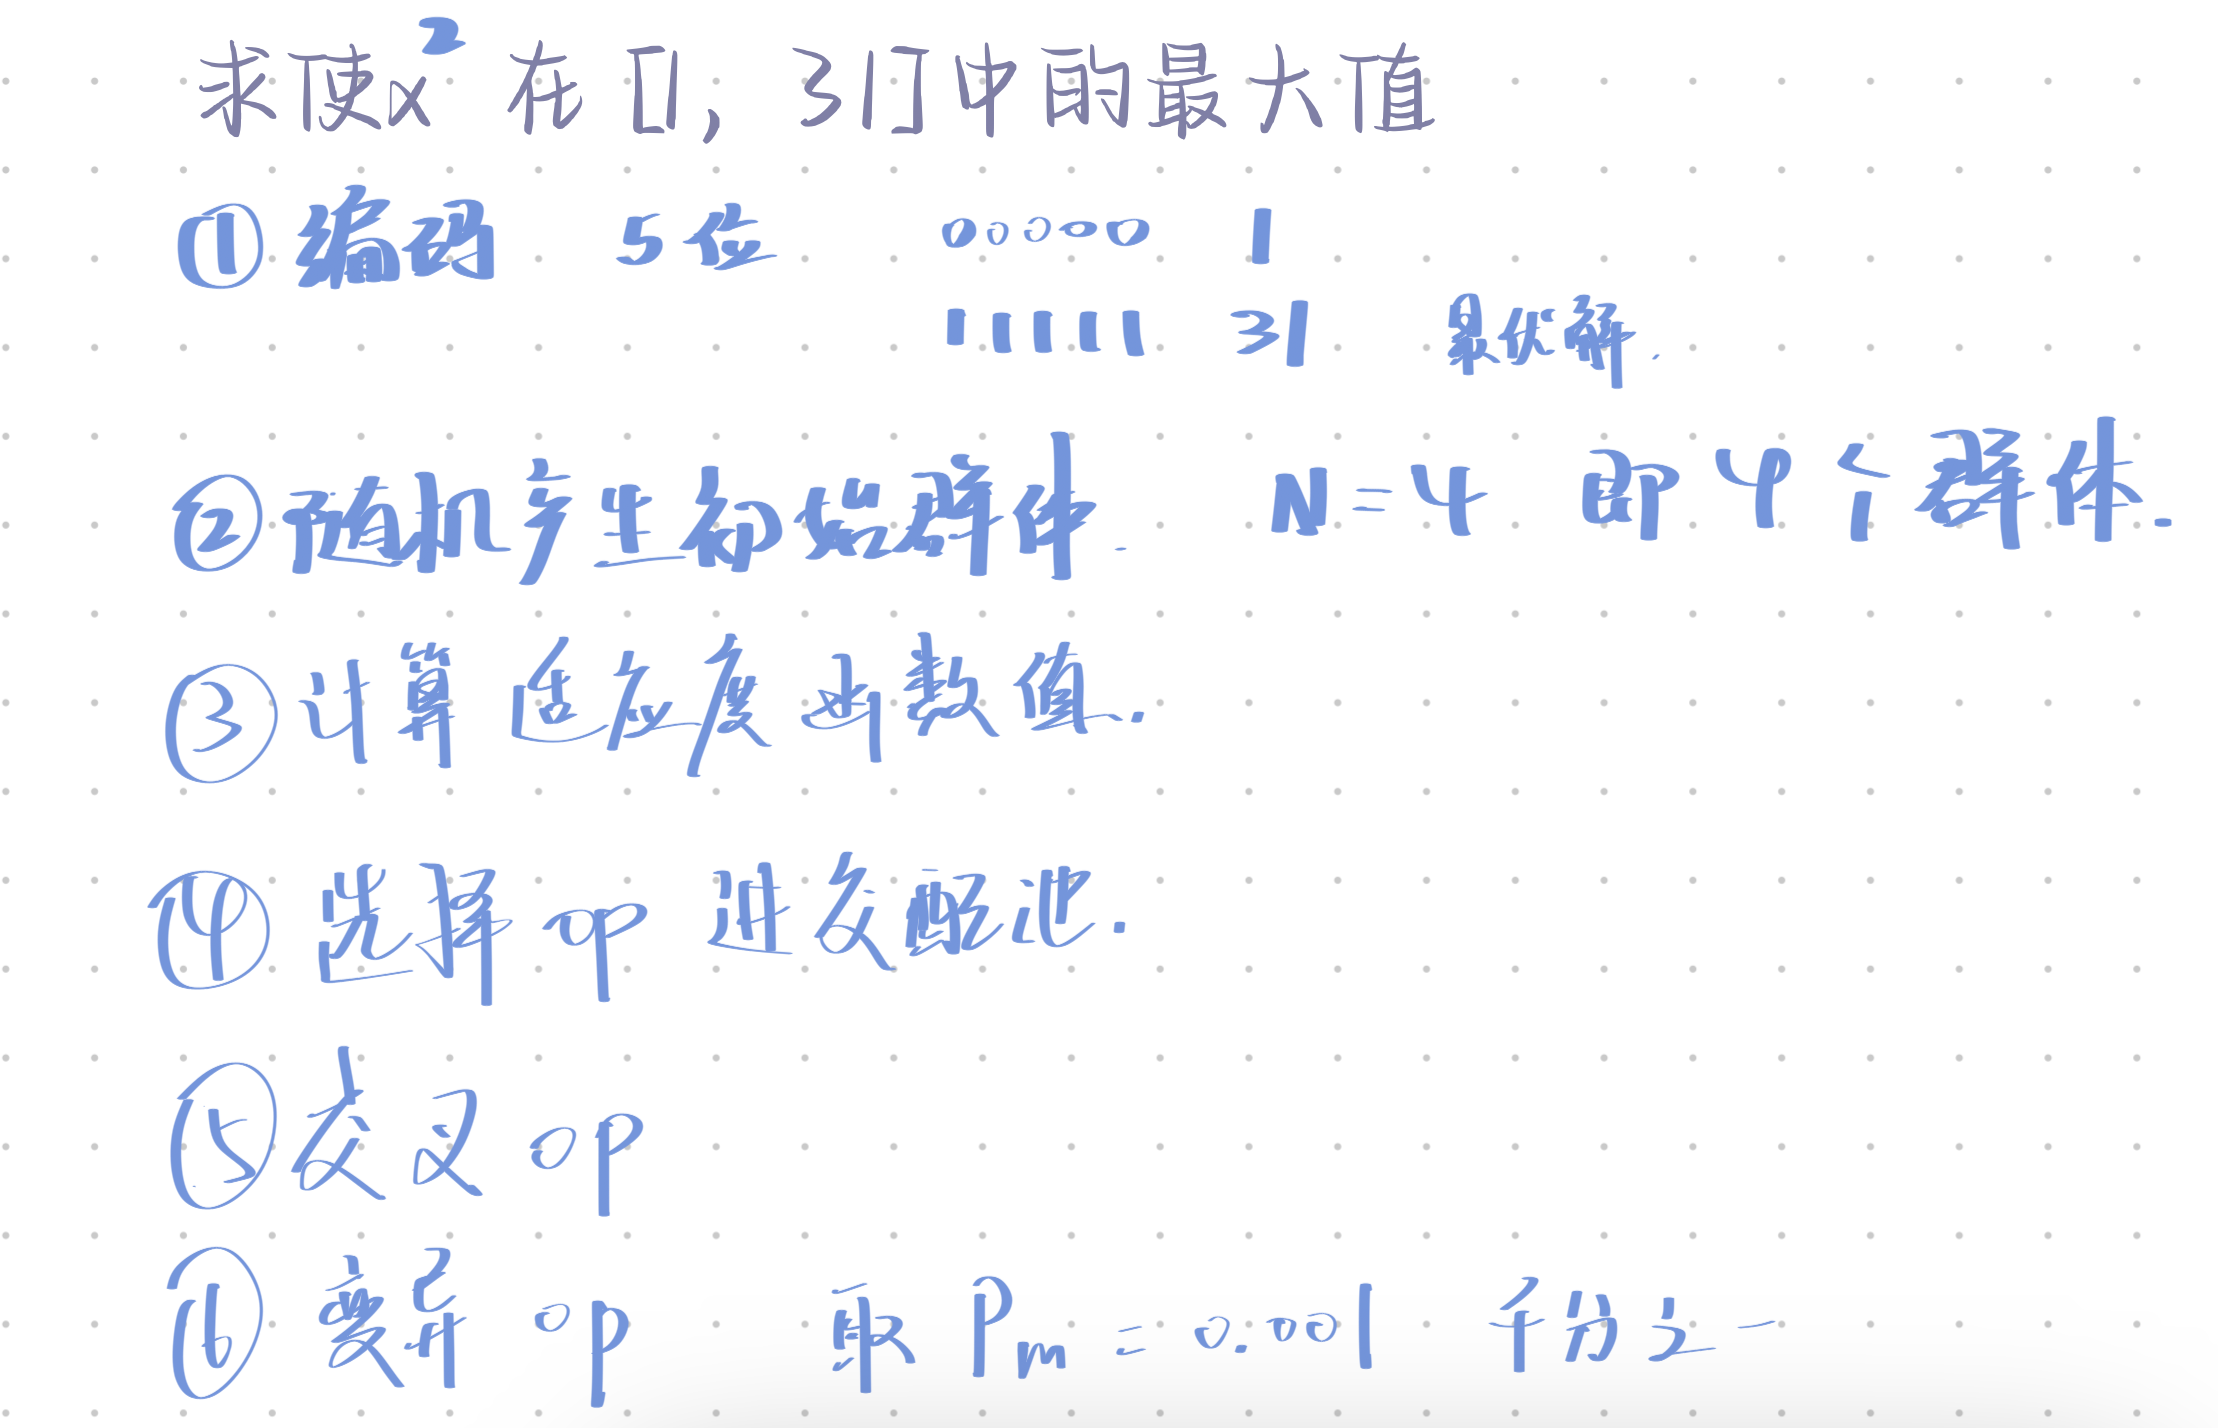 求使x² 在 [1, 31]中的最大值
① 编码 5位 00000 1
11111 31 最优解.
② 随机产生初始群体. N=4 即4个群体.
③ 计算适应度函数值.
④ 选择 op 进交配池.
⑤ 交叉 op
⑥ 变异 op 取 Pm = 0.001 千分之一